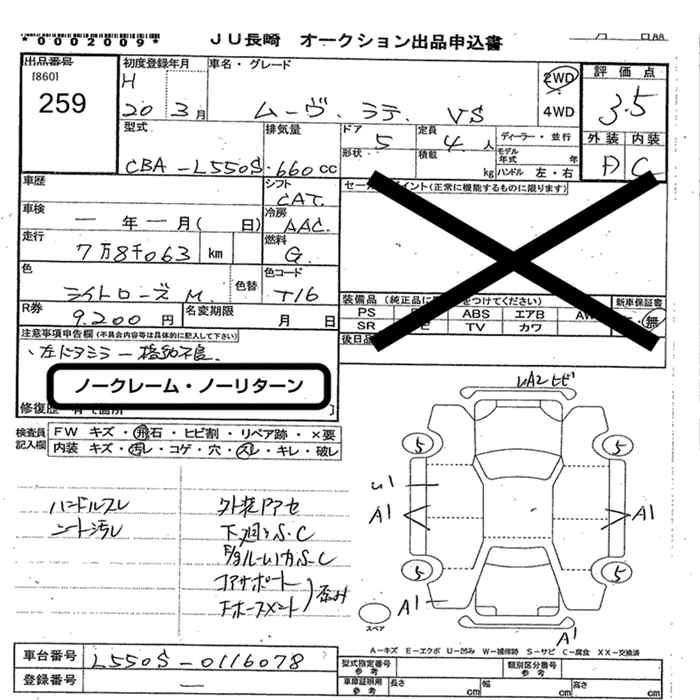 *0002009*
JU長崎 オークション出品申込書
月 日
出品番号
[860]
259
初度登録年月
H
20 3月
車名・グレード
ムーヴ ラテ VS
2WD
4WD
評価点
3.5
外装 内装
A C
型式
CBA-L550S
排気量
660cc
ドア
5
形状
定員
4人
積載
kg
ディーラー・並行
モデル年式 年
ハンドル 左・右
車歴
シフト
CAT
セールスポイント(正常に機能するものに限ります)
車検
一年一月( 日)
冷房
AAC
走行
7万8千063 km
燃料
G
色
ライトローズM
色替
色コード
T16
R券
9.200円
名変期限
月 日
装備品(純正品に をつけてください)
新車保証書
PS ABS エアB AW
SR TV カワ
無
後日品
注意事項申告欄(不具合内容等は具体的に記入して下さい)
・左ドアミラー格納不良
ノークレーム・ノーリターン
修復歴
検査員記入欄
FW キズ・飛石・ヒビ割・リペア跡・×要
内装 キズ・汚レ・コゲ・穴・スレ・キレ・破レ
ハンドルスレ
シート汚レ
外装Pアセ
下廻りS.C
コアサポート
歪み
UA2 ヒビ
5 5
U1
A1 A1
5 5
A1
スペア
A1
A-キズ E-エクボ U-凹み W-補修跡 S-サビ C-腐食 XX-交換済
車台番号
L550S-0116078
登録番号
一
型式指定番号
参考
類別区分番号
参考
車庫証明用
参考
長さ cm 幅 cm 高さ cm